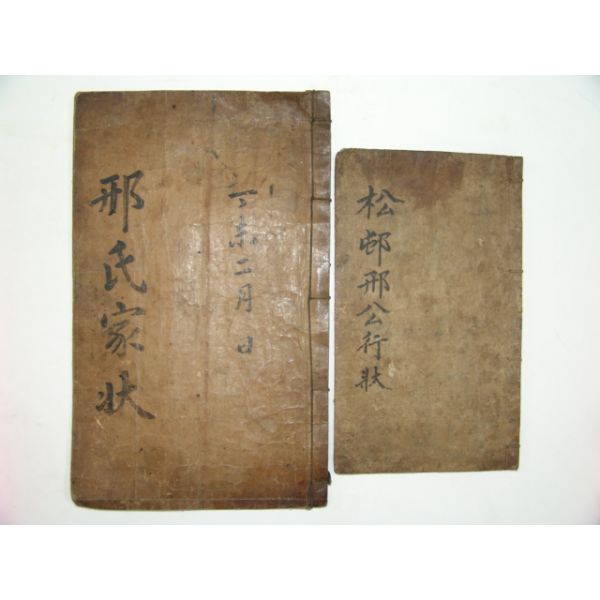 邢氏家狀
丁未二月 日
松邨邢公行狀